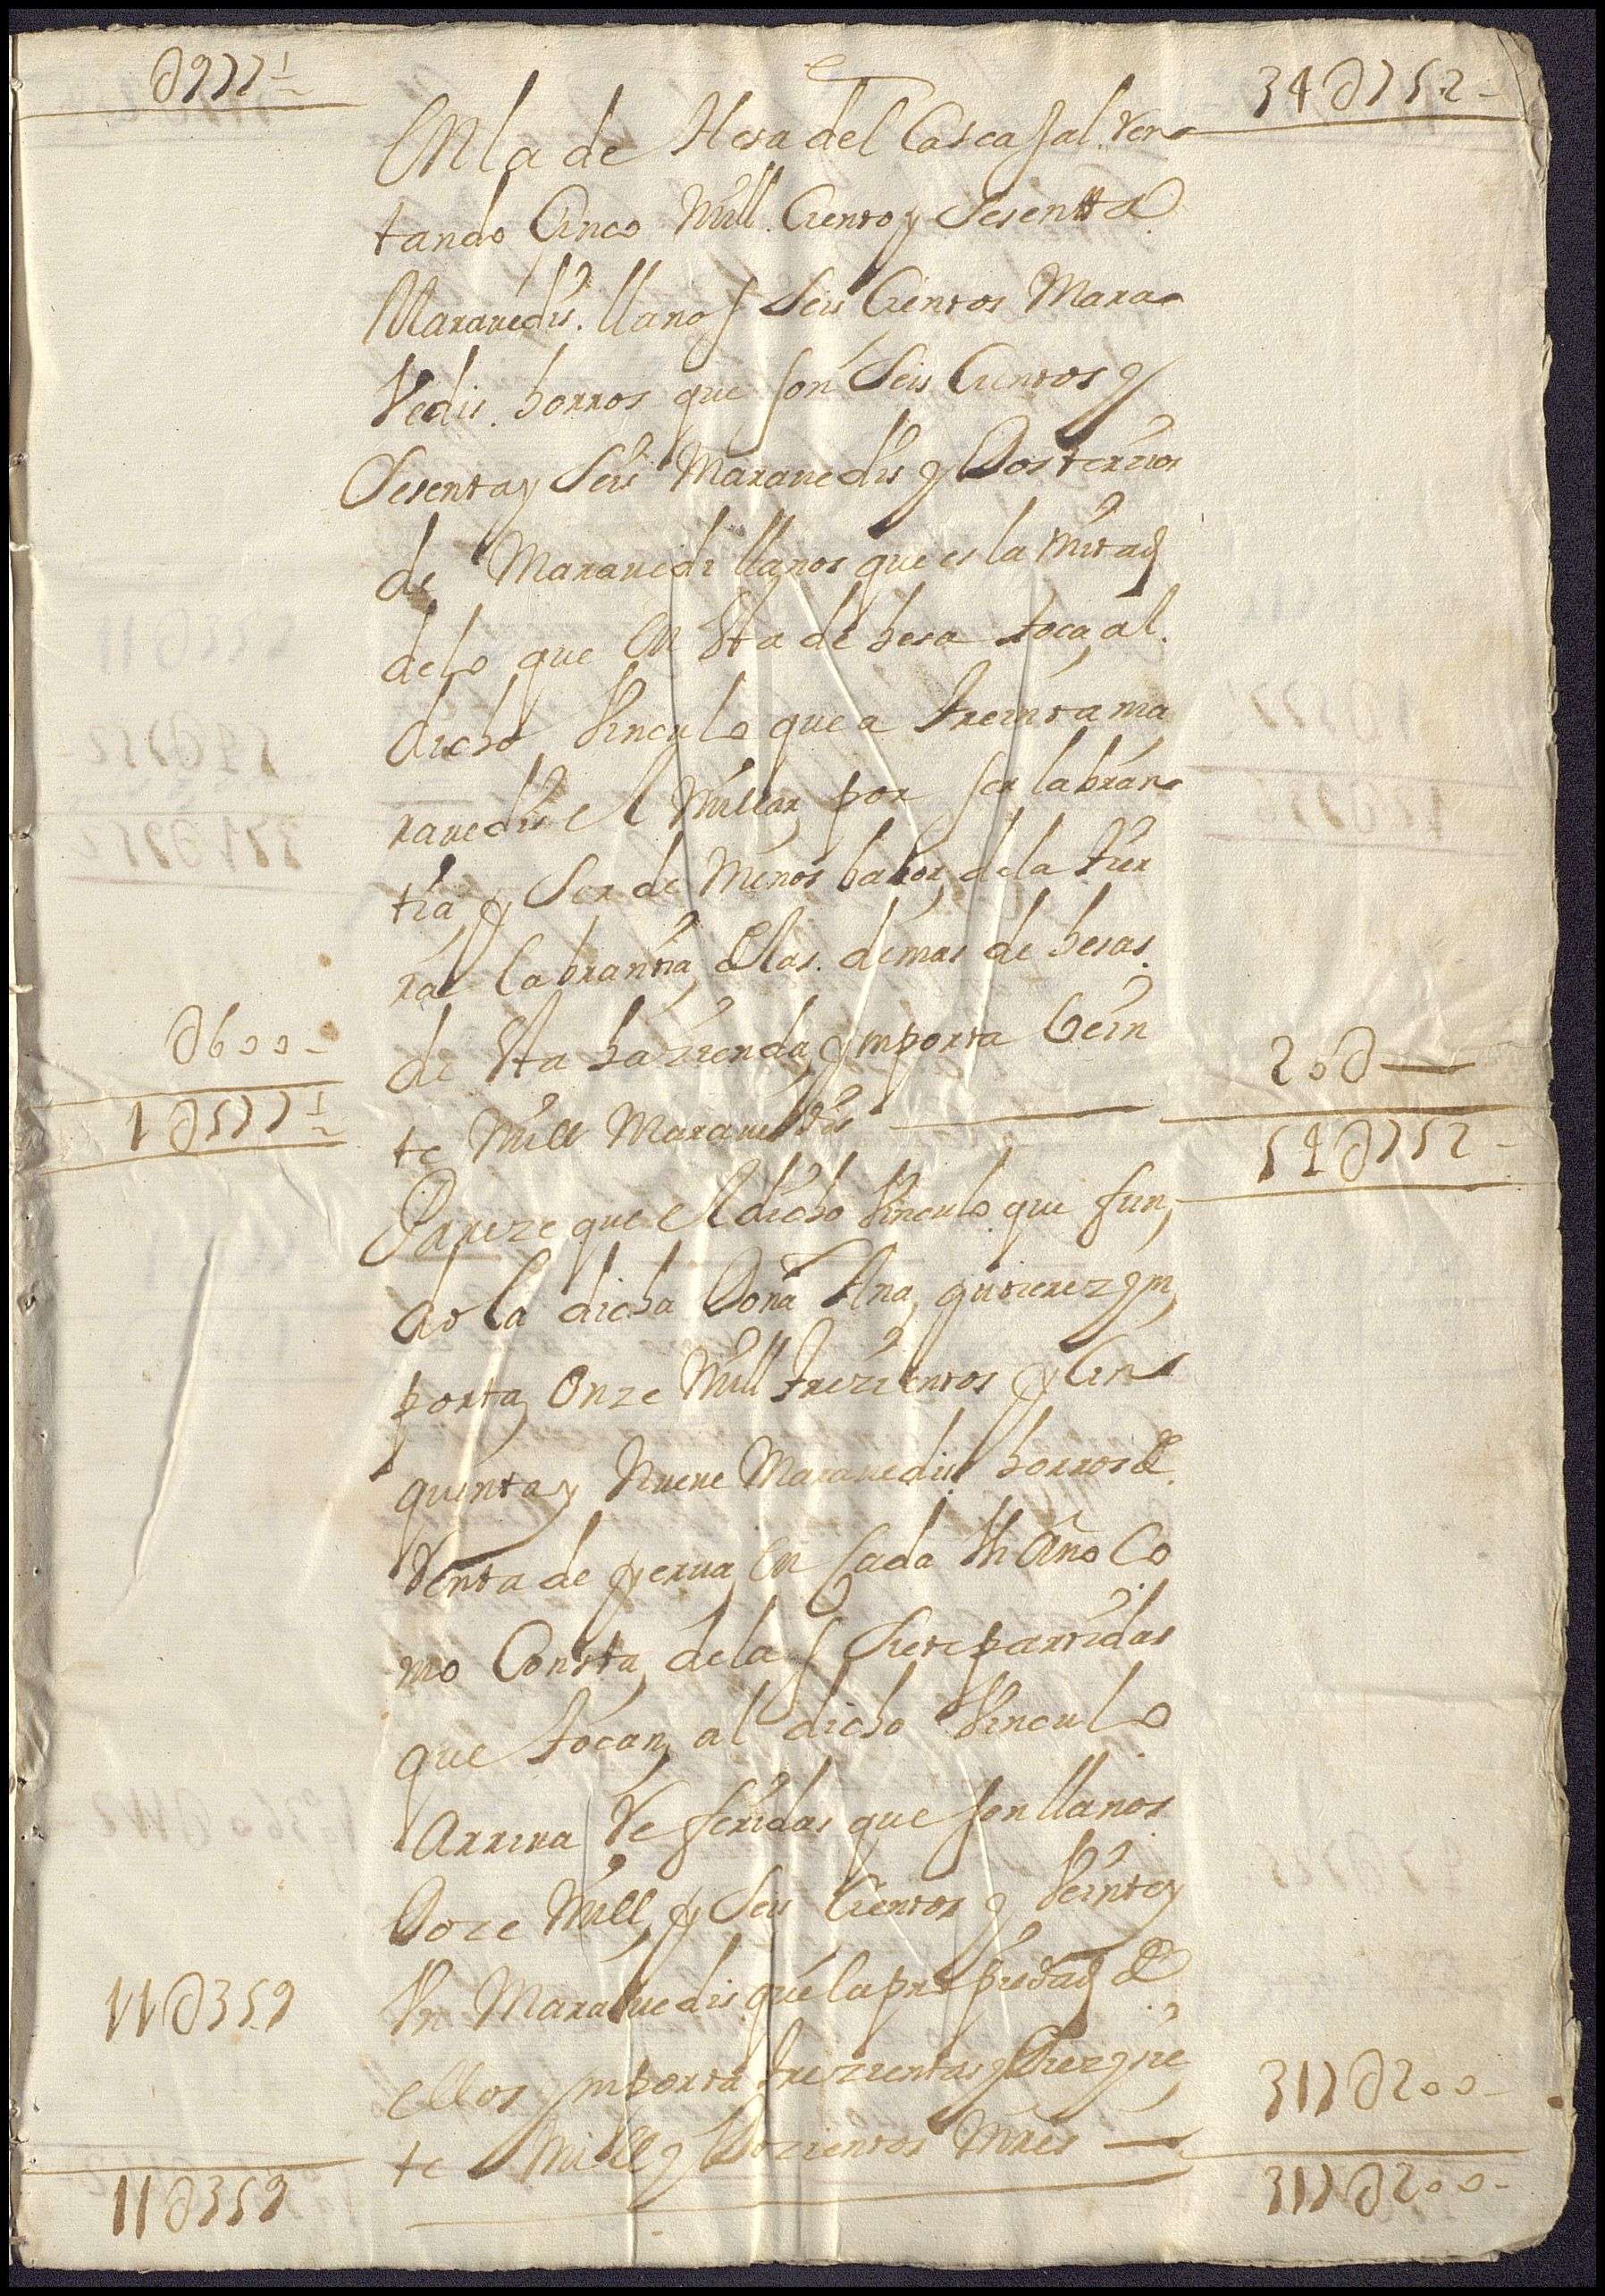 ∂977 1/2
34∂752
En la de Hesa del Cascajal. Ren
tando Cinco Mill. Ciento y Sesentta
Marauedis. llanos Seis Cientos Mara
Vedis. horros que son Seis Cientos y
Sesenta y Seis Marauedis y Dos tercios
de Marauedi llanos que es la Mitad
de lo que en sta de hesa toca al.
dicho Vinculo que a treinta ma
rauedis el Millar por ser labran
tia y Ser de Menos balor de la tier
ra labrantia de las. demas de hesas.
de sta hazienda ymporta bein
∂600
20∂
te Mill Marauedis
1∂577 1/2
54∂752
Pareze que el dicho Vinculo que fun
do la dicha Doña Ana gutierrez ym
porta Onze Mill trezientos y Cin
quenta y Nueue Marauedis horros de
Renta de yerua en Cada Vn Año Co
mo Consta de las Siete partidas
que tocan al dicho Vinculo
Arriua Referidas que son llanos
Doze Mill y Seis Cientos y Veinte y
Vn Marauedis que la propiedad de
11∂359
ellos ymporta trezientas y Diez y sie
317∂200
te Mill y Dozientos Mres
11∂359
317∂200